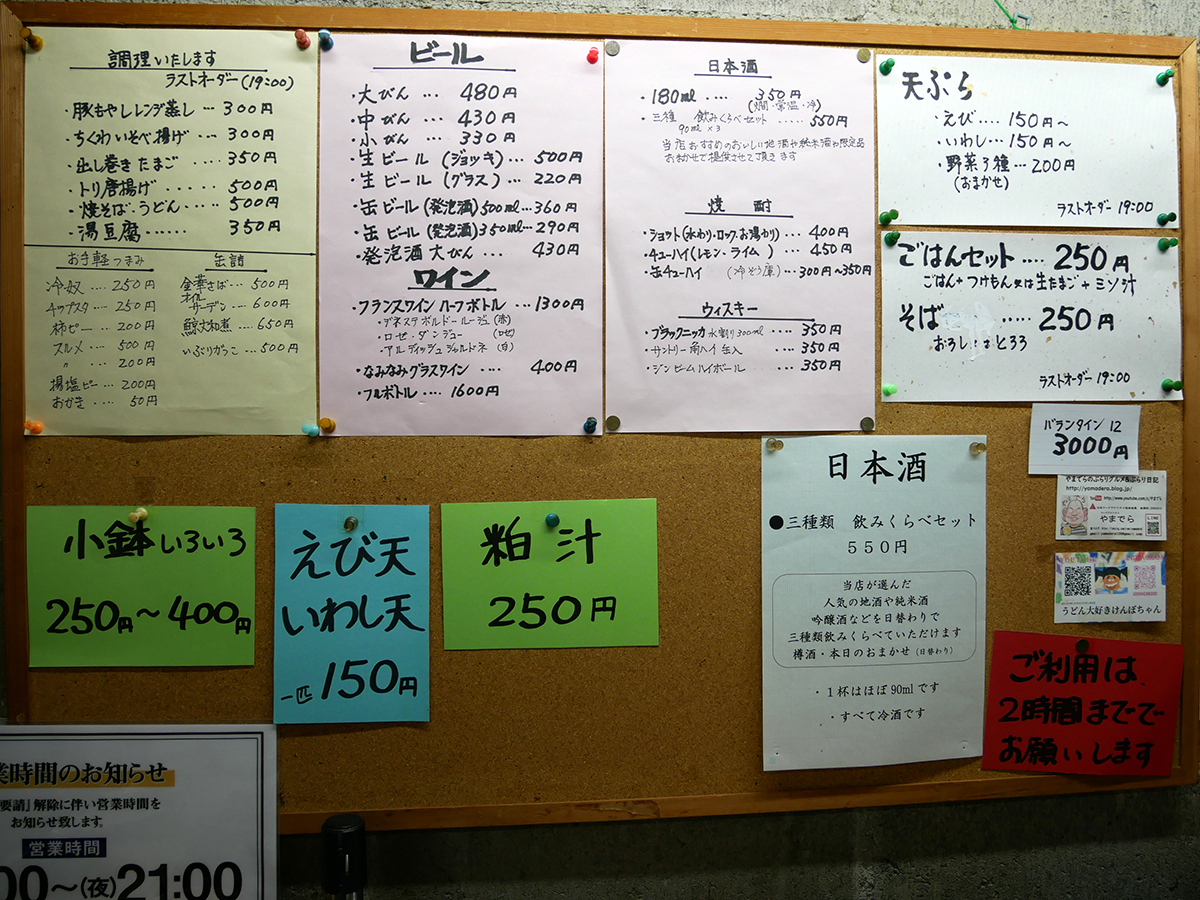 調理いたします
ラストオーダー(19:00)
・豚もやしレンジ蒸し … 300円
・ちくわいそべ揚げ … 300円
・出し巻きたまご …… 350円
・トリ唐揚げ …… 500円
・焼そば・うどん …… 500円
・湯豆腐 …… 350円
お手軽つまみ
冷奴 …… 250円
チップスタ …… 250円
柿ピー … 200円
スルメ … 500円
〃 … 200円
揚塩ピー … 200円
おかき …… 50円
缶詰
金華さば … 500円
オイル
サーディン … 600円
鯨大和煮 … 650円
いぶりがっこ … 500円
ビール
・大びん … 480円
・中びん … 430円
・小びん … 330円
・生ビール (ジョッキ) … 500円
・生ビール (グラス) … 220円
・缶ビール(発泡酒)500ml … 360円
・缶ビール(発泡酒)350ml … 290円
・発泡酒大びん … 430円
ワイン
・フランスワインハーフボトル … 1300円
・デネステボルドールージュ(赤)
・ロゼ・ダンジュー (ロゼ)
・アルディッシュシャルドネ (白)
・なみなみグラスワイン …… 400円
・フルボトル …… 1600円
日本酒
・180ml …… 350円
(燗・常温・冷)
・三種 飲みくらべセット …… 550円
90ml×3
当店おすすめのおいしい地酒や純米酒や限定品
おまかせで提供させて頂きます
焼酎
・ショット(水わり・ロック・お湯わり) … 400円
・チューハイ(レモン・ライム) … 450円
・缶チューハイ (冷ぞう庫) … 300円〜350円
ウィスキー
・ブラックニッカ 水割り300ml …… 350円
・サントリー角ハイ缶入 …… 350円
・ジンビームハイボール …… 350円
天ぷら
・えび …… 150円〜
・いわし …… 150円〜
・野菜3種 … 200円
(おまかせ)
ラストオーダー 19:00
ごはんセット …… 250円
ごはん+つけもん又は生たまご+ミソ汁
そば …… 250円
おろし又はとろろ
ラストオーダー 19:00
バランタイン 12
3000円
やまでらのぶらりグルメ&ぶらり日記
http://yamadera.blog.jp/
やまでら
LINE
うどん大好きけんぼちゃん
小鉢いろいろ
250円〜400円
えび天
いわし天
一匹 150円
粕汁
250円
日本酒
●三種類 飲みくらべセット
550円
当店が選んだ
人気の地酒や純米酒
吟醸酒などを日替わりで
三種類飲みくらべていただけます
樽酒・本日のおまかせ (日替わり)
・1杯はほぼ90mlです
・すべて冷酒です
ご利用は
2時間までで
お願いします
業時間のお知らせ
要請」解除に伴い営業時間を
お知らせ致します。
営業時間
00〜(夜)21:00